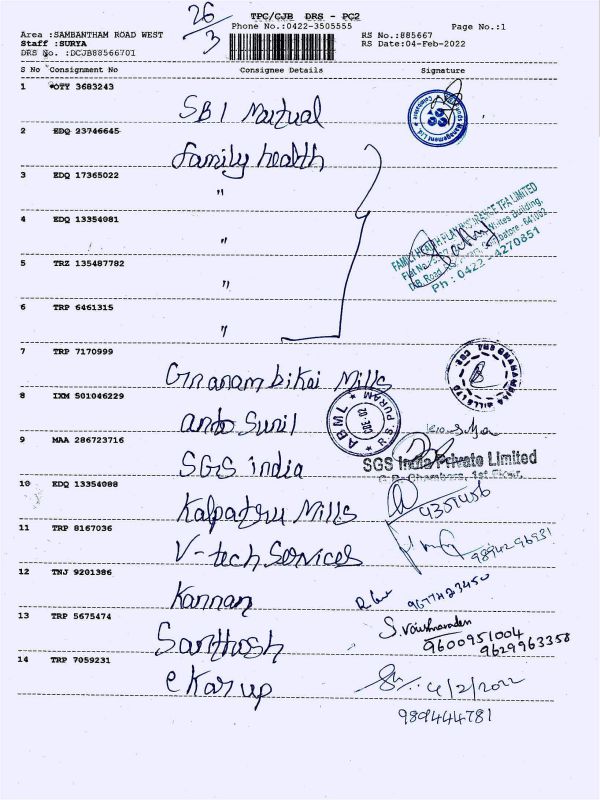 26/3
TPC/CJB DRS - PC2
Phone No.:0422-3505555
Page No.:1
Area :SAMBANTHAM ROAD WEST
Staff :SURYA
DRS No. :DCJB88566701
RS No.:885667
RS Date:04-Feb-2022
S No Consignment No Consignee Details Signature
1 OTY 3683243 SBI Mutual
2 EDQ 23746645 family health
3 EDQ 17365022 "
4 EDQ 13354081 "
FAMILY HEALTH PLAN INSURANCE TPA LIMITED
Ph : 0422 - 4270851
5 TRZ 135487782 "
6 TRP 6461315 "
7 TRP 7170999 Gnanambikai Mills
8 IXM 501046229 anto Sunil
ABWL R.S. PURAM
9 MAA 286723716 SGS india
SGS India Private Limited
10 EDQ 13354088 Kalpatru Mills
11 TRP 8167036 V-tech Services
12 TNJ 9201386 Kannan
13 TRP 5675474 Santhosh
9600951004
9629963358
14 TRP 7059231 e Karup 4/2/2022
989444781